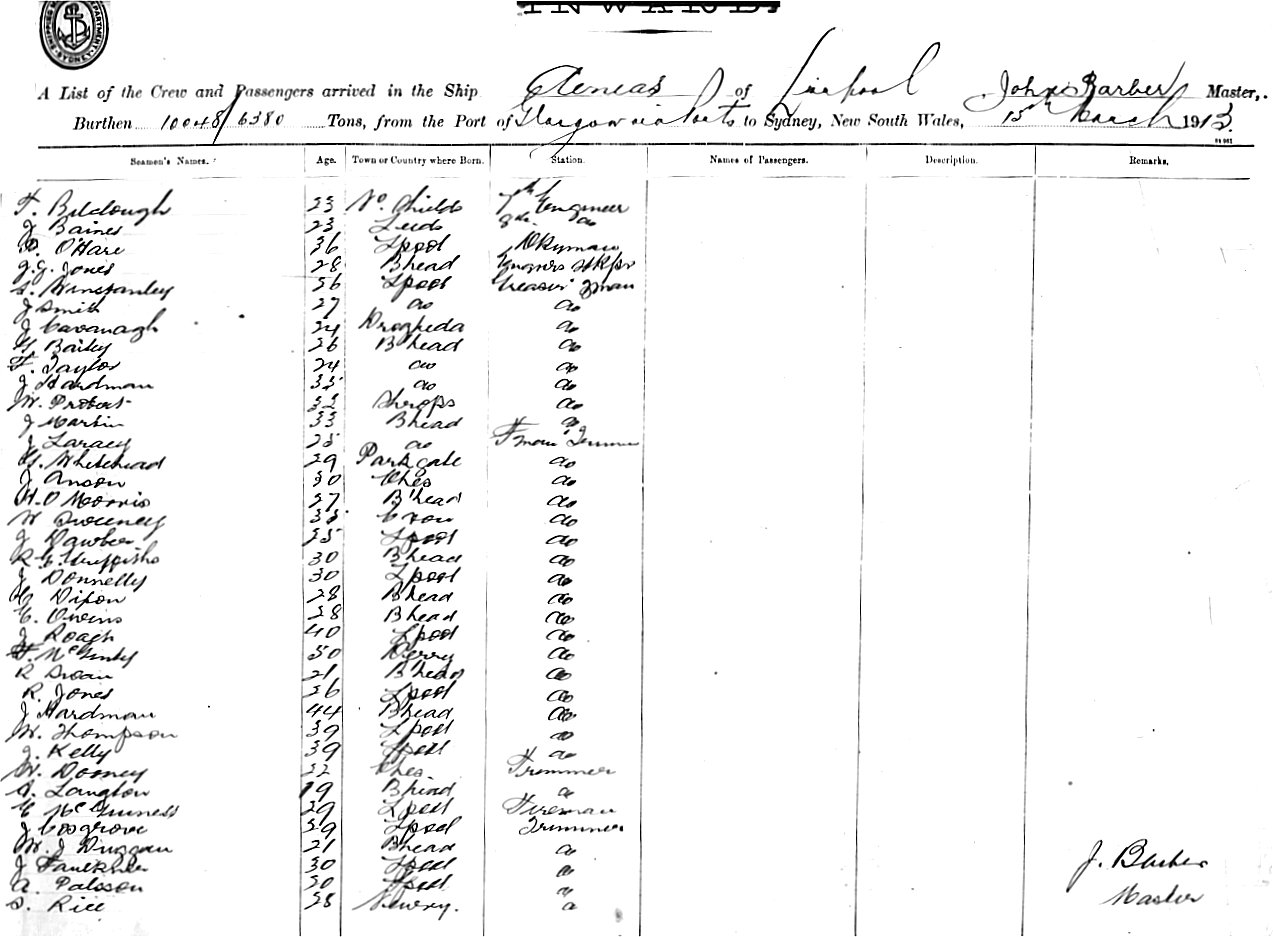 INWARD.
SYDNEY
A List of the Crew and Passengers arrived in the Ship Aeneas of Liverpool John Barber Master,
Burthen 10048/6380 Tons, from the Port of Glasgow via Ports to Sydney, New South Wales, 15th March 1913.
Seamen's Names. Age. Town or Country where Born. Station. Names of Passengers. Description. Remarks.
F. Bilclough 23 No. Shields 7th Engineer
J Baines 23 Leeds 8th do
O'Hare 36 Lpool Dkyman
J.G. Jones 28 Bhead Engnrs Stkpr
S. Winstanley 26 Lpool Greaser
J Smith 27 do do
J Cavanagh 24 Drogheda do
G Bailey 26 Bhead do
F. Taylor 24 do do
J Hardman 35 do do
W. Probert 32 Shrops do
J Martin 33 Bhead do
J Laracy 25 do Fman Trimmer
G. Whitehead 29 Parkgate do
J Anson 30 Ches do
H.O Morris 27 B'head do
W Sweeney 35 do
J Dawber Lpool do
R G. Griffiths 30 Bhead do
J Donnelly 30 Lpool do
Dixon 28 Bhead do
E. Owens 28 Bhead do
J Roach 40 Lpool do
F. McGinty 50 Derry do
R Swan 21 B'head do
R. Jones 26 Lpool do
J Hardman 44 Bhead do
W. Thompson 39 Lpool do
J. Kelly 39 Lpool do
W. Dooney 22 Ches. Trimmer
A. Langton 19 Bhead do
E McGuiness 29 Lpool Fireman
J Cosgrove 29 Lpool Trimmer
W. J Duggan 21 Bhead do
J Faulkner 30 Lpool do
J. Barber
A. Palsson 20 Lpool do
Master
S. Rice 28 Newry. do